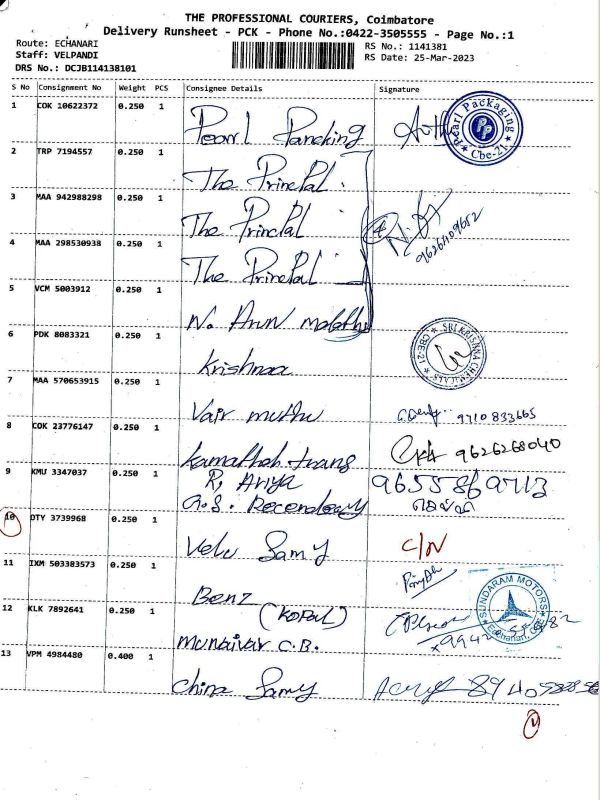 THE PROFESSIONAL COURIERS, Coimbatore
Delivery Runsheet - PCK - Phone No.:0422-3505555 - Page No.:1
Route: ECHANARI RS No.: 1141381
Staff: VELPANDI RS Date: 25-Mar-2023
DRS No.: DCJB114138101
S No Consignment No Weight PCS Consignee Details Signature
1 COK 10622372 0.250 1
Pearl Pancking
Pearl Packaging PP Cbe-21
2 TRP 7194557 0.250 1
The Prinepal
3 MAA 942988298 0.250 1
The Princpal
4 9626409652
4 MAA 298530938 0.250 1
The Prinepal
5 VCM 5003912 0.250 1
N. Arun malathi
6 PDK 8083321 0.250 1
Krishnaa
SRI KRISHNA CHEMICALS CBE-21
7 MAA 570653915 0.250 1
Vair muthu 9710833665
8 COK 23776147 0.250 1
Kamatchah trans 9626268040
9 KMU 3347037 0.250 1
R. Ariya 9655869713
G.S. Recendency
10 DTY 3739968 0.250 1
Velu Samy C/N
11 IXM 503383573 0.250 1
Benz
SUNDARAM MOTORS Eachanari, CBE
12 KLK 7892641 0.250 1
(Kopal)
Munaivar C.B.
13 VPM 4984480 0.400 1
China Samy